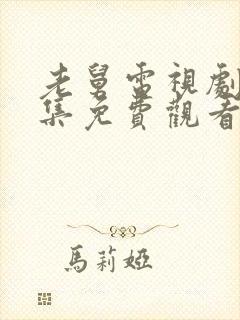 老舅電視劇
集免費觀看
馬莉婭